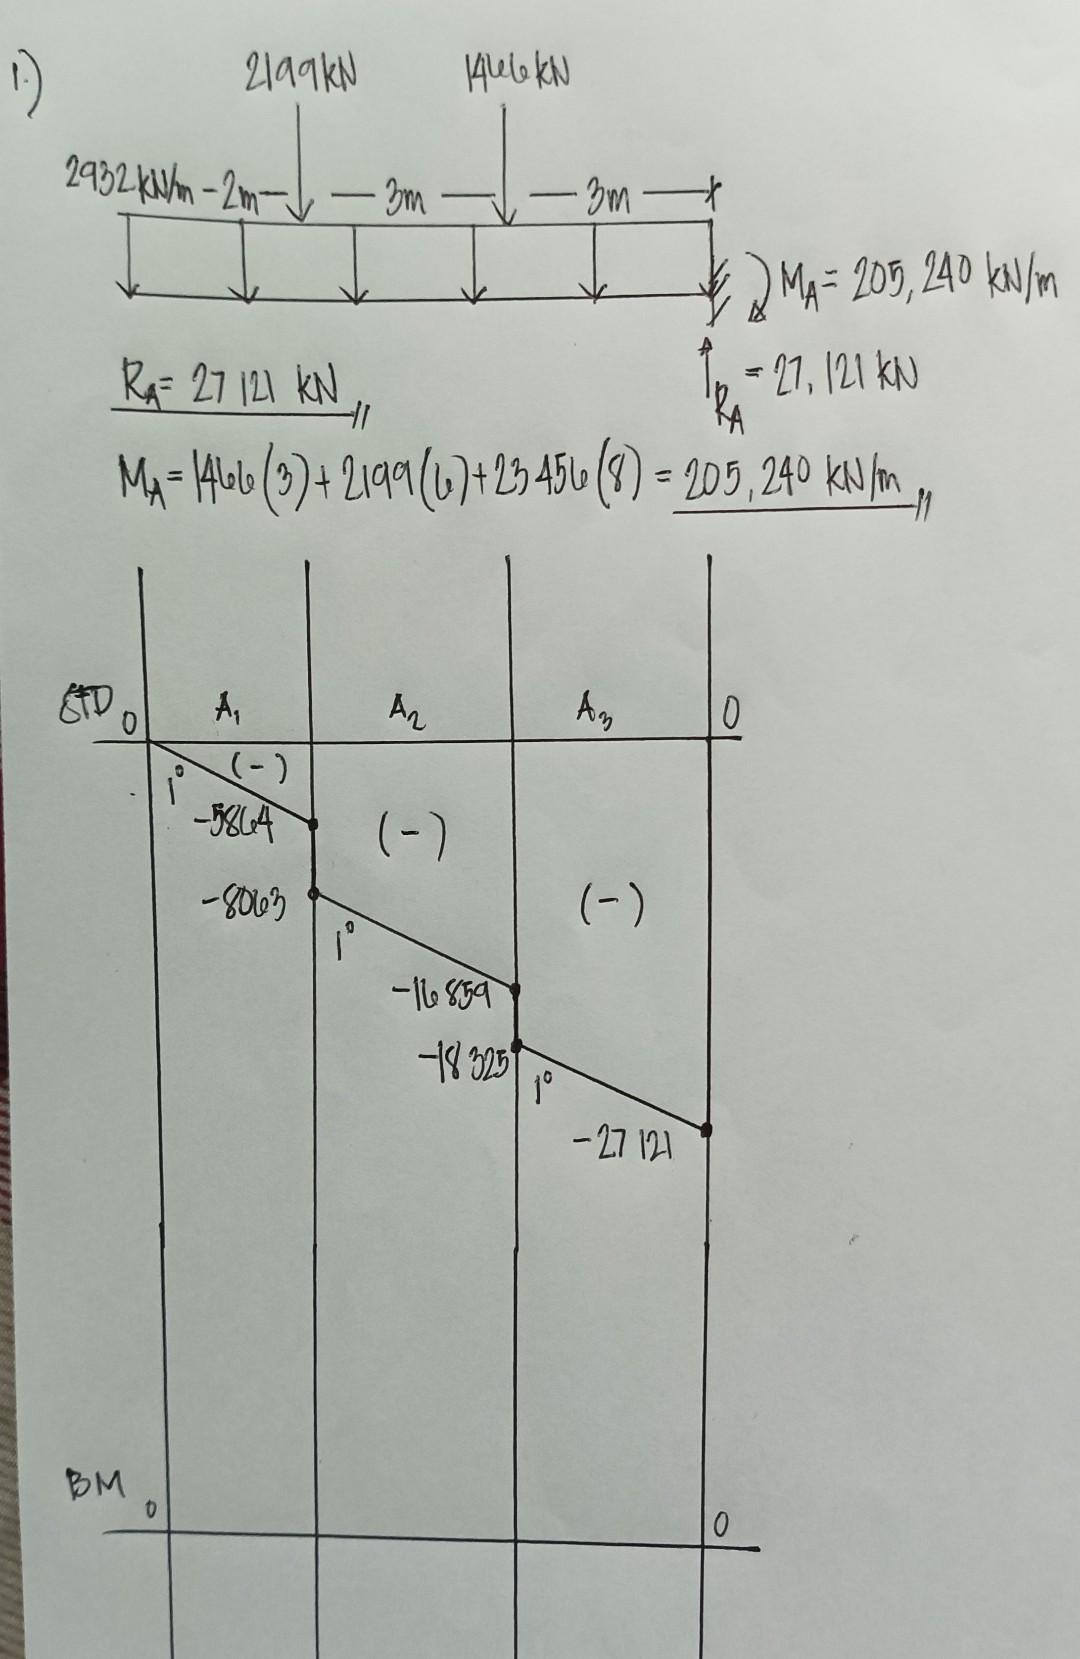 1.)
2199kN 1466kN
2932kN/m -2m- — 3m — — 3m —
MA = 205, 240 kN/m
RA = 27 121 kN
RA = 27, 121 kN
MA = 1466(3) + 2199(6) + 23 456(8) = 205, 240 kN/m
SFD 0 A1 A2 A3 0
1° (-)
-5864 (-)
-8063 (-)
1°
-16 859
-18 325
1°
-27 121
BM 0 0